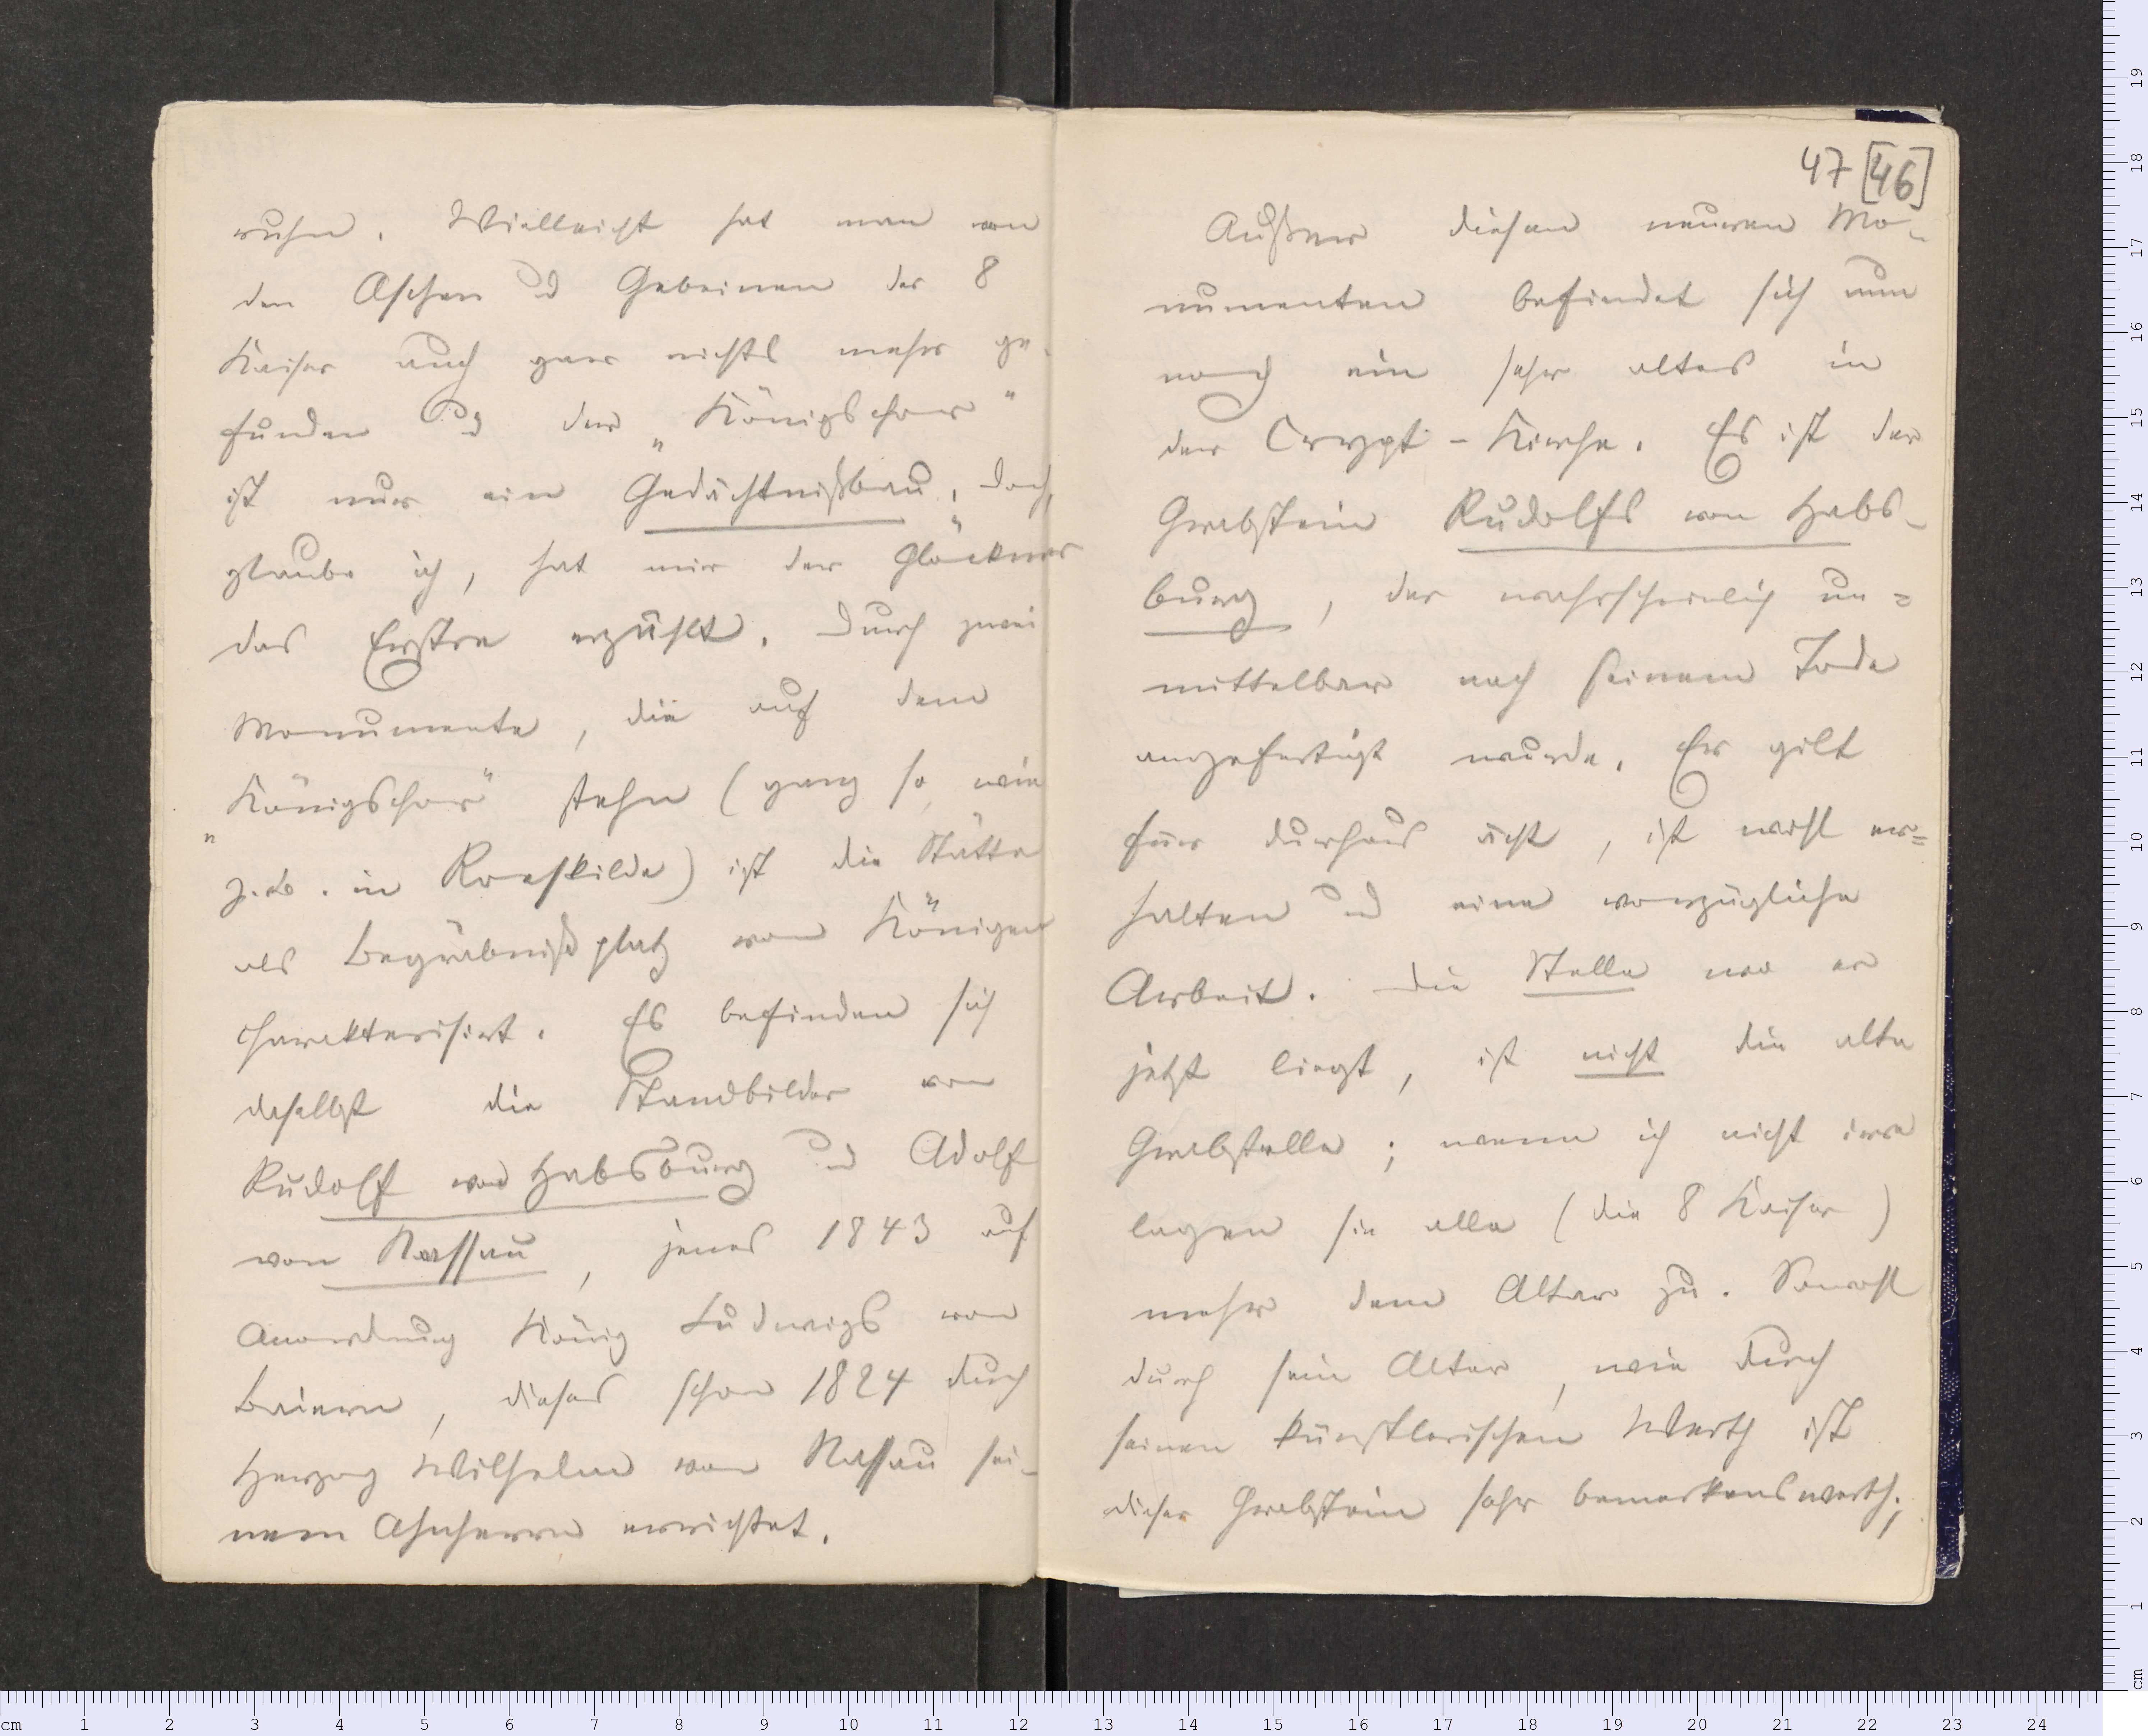 ruhn. Vielleicht hat man von
den Aschen u Gebeinen der 8
Kaiser auch gar nichts mehr ge-
funden u der „Königschor“
ist nur ein Gedächtnißbau, doch,
glaube ich, hat mir der Glöckner
das Erstre erzählt. Durch zwei
Monumente, die auf dem
„Königschor“ stehn (ganz so wie
z. B. in Roeskilde) ist die Stätte
als Begräbnißplatz von Königen
charakterisirt. Es befinden sich
daselbst die Standbilder von
Rudolf von Habsburg u Adolf
von Nassau, jenes 1843 auf
Anordnung König Ludwigs von
Baiern, dieses schon 1824 durch
Herzog Wilhelm von Nassau sei-
nem Ahnherrn errichtet.
47 [46]
Außer diesen neueren Mo-
numenten befindet sich nun
noch ein sehr altes in
der Crypt-Kirche. Es ist der
Grabstein Rudolfs von Habs-
burg, der wahrscheinlich un=
mittelbar nach seinem Tode
angefertigt wurde. Er gilt
für durchaus ächt, ist wohl er=
halten u eine vorzügliche
Arbeit. Die Stelle wo er
jetzt liegt, ist nicht die alte
Grabstelle; wenn ich nicht irre
lagen sie alle (die 8 Kaiser)
mehr dem Altar zu. Sowohl
durch sein Alter, wie durch
seinen künstlerischen Werth ist
dieser Grabstein sehr bemerkenswerth;
cm 1 2 3 4 5 6 7 8 9 10 11 12 13 14 15 16 17 18 19 20 21 22 23 24
cm 1 2 3 4 5 6 7 8 9 10 11 12 13 14 15 16 17 18 19